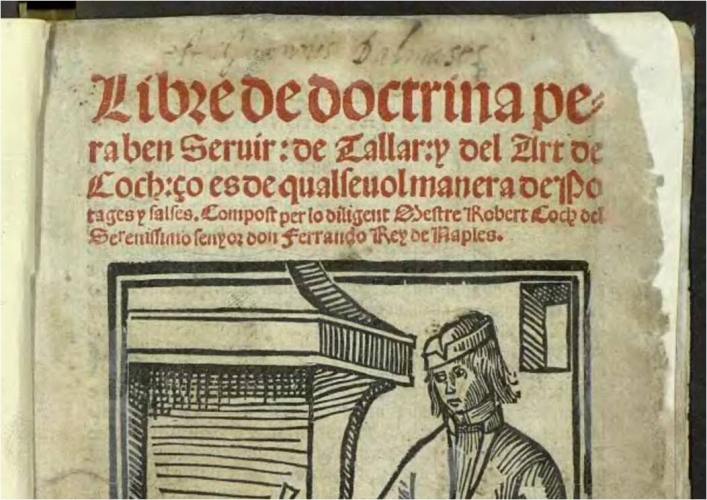 Dalmases
Libre de doctrina pe-
ra ben Seruir: de Tallar: y del Art de
Coch: ço es de qualseuol manera de Po
tages y salses. Compost per lo diligent Mestre Robert Coch del
Serenissimo senyor don Ferrando Rey de Naples.